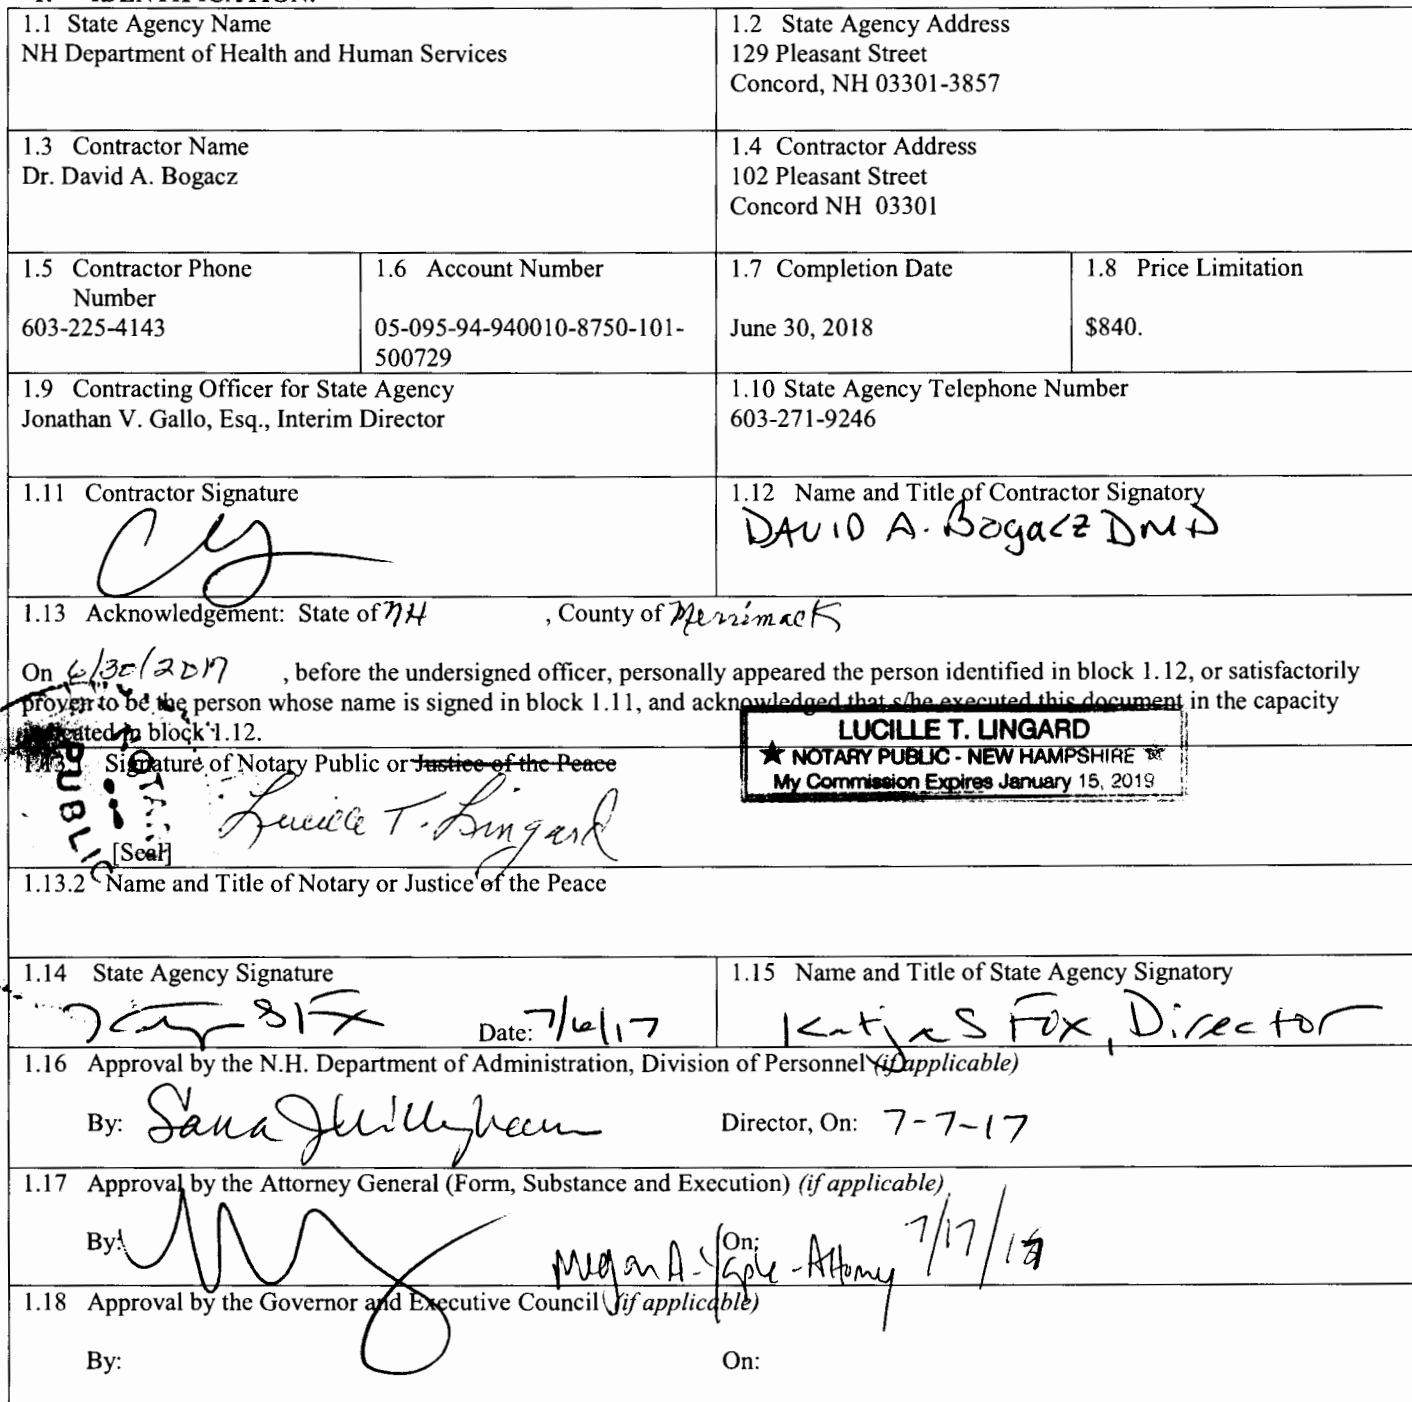 1.1 State Agency Name
NH Department of Health and Human Services
1.2 State Agency Address
129 Pleasant Street
Concord, NH 03301-3857
1.3 Contractor Name
Dr. David A. Bogacz
1.4 Contractor Address
102 Pleasant Street
Concord NH 03301
1.5 Contractor Phone
Number
603-225-4143
1.6 Account Number
05-095-94-940010-8750-101-
500729
1.7 Completion Date
June 30, 2018
1.8 Price Limitation
$840.
1.9 Contracting Officer for State Agency
Jonathan V. Gallo, Esq., Interim Director
1.10 State Agency Telephone Number
603-271-9246
1.11 Contractor Signature
1.12 Name and Title of Contractor Signatory
DAVID A. Bogacz DMD
1.13 Acknowledgement: State of NH , County of Merrimack
On 6/30/2017 , before the undersigned officer, personally appeared the person identified in block 1.12, or satisfactorily
proven to be the person whose name is signed in block 1.11, and acknowledged that s/he executed this document in the capacity
block 1.12.
LUCILLE T. LINGARD
★ NOTARY PUBLIC - NEW HAMPSHIRE ★
My Commission Expires January 15, 2019
Signature of Notary Public or Justice of the Peace
PUBLIC
Lucille T. Lingard
[Seal]
1.13.2 Name and Title of Notary or Justice of the Peace
1.14 State Agency Signature
Date: 7/6/17
1.15 Name and Title of State Agency Signatory
Katja S Fox, Director
1.16 Approval by the N.H. Department of Administration, Division of Personnel (if applicable)
By: Director, On: 7-7-17
1.17 Approval by the Attorney General (Form, Substance and Execution) (if applicable)
By: Megan A. Yaple - Attorney On: 7/17/17
1.18 Approval by the Governor and Executive Council (if applicable)
By: On: